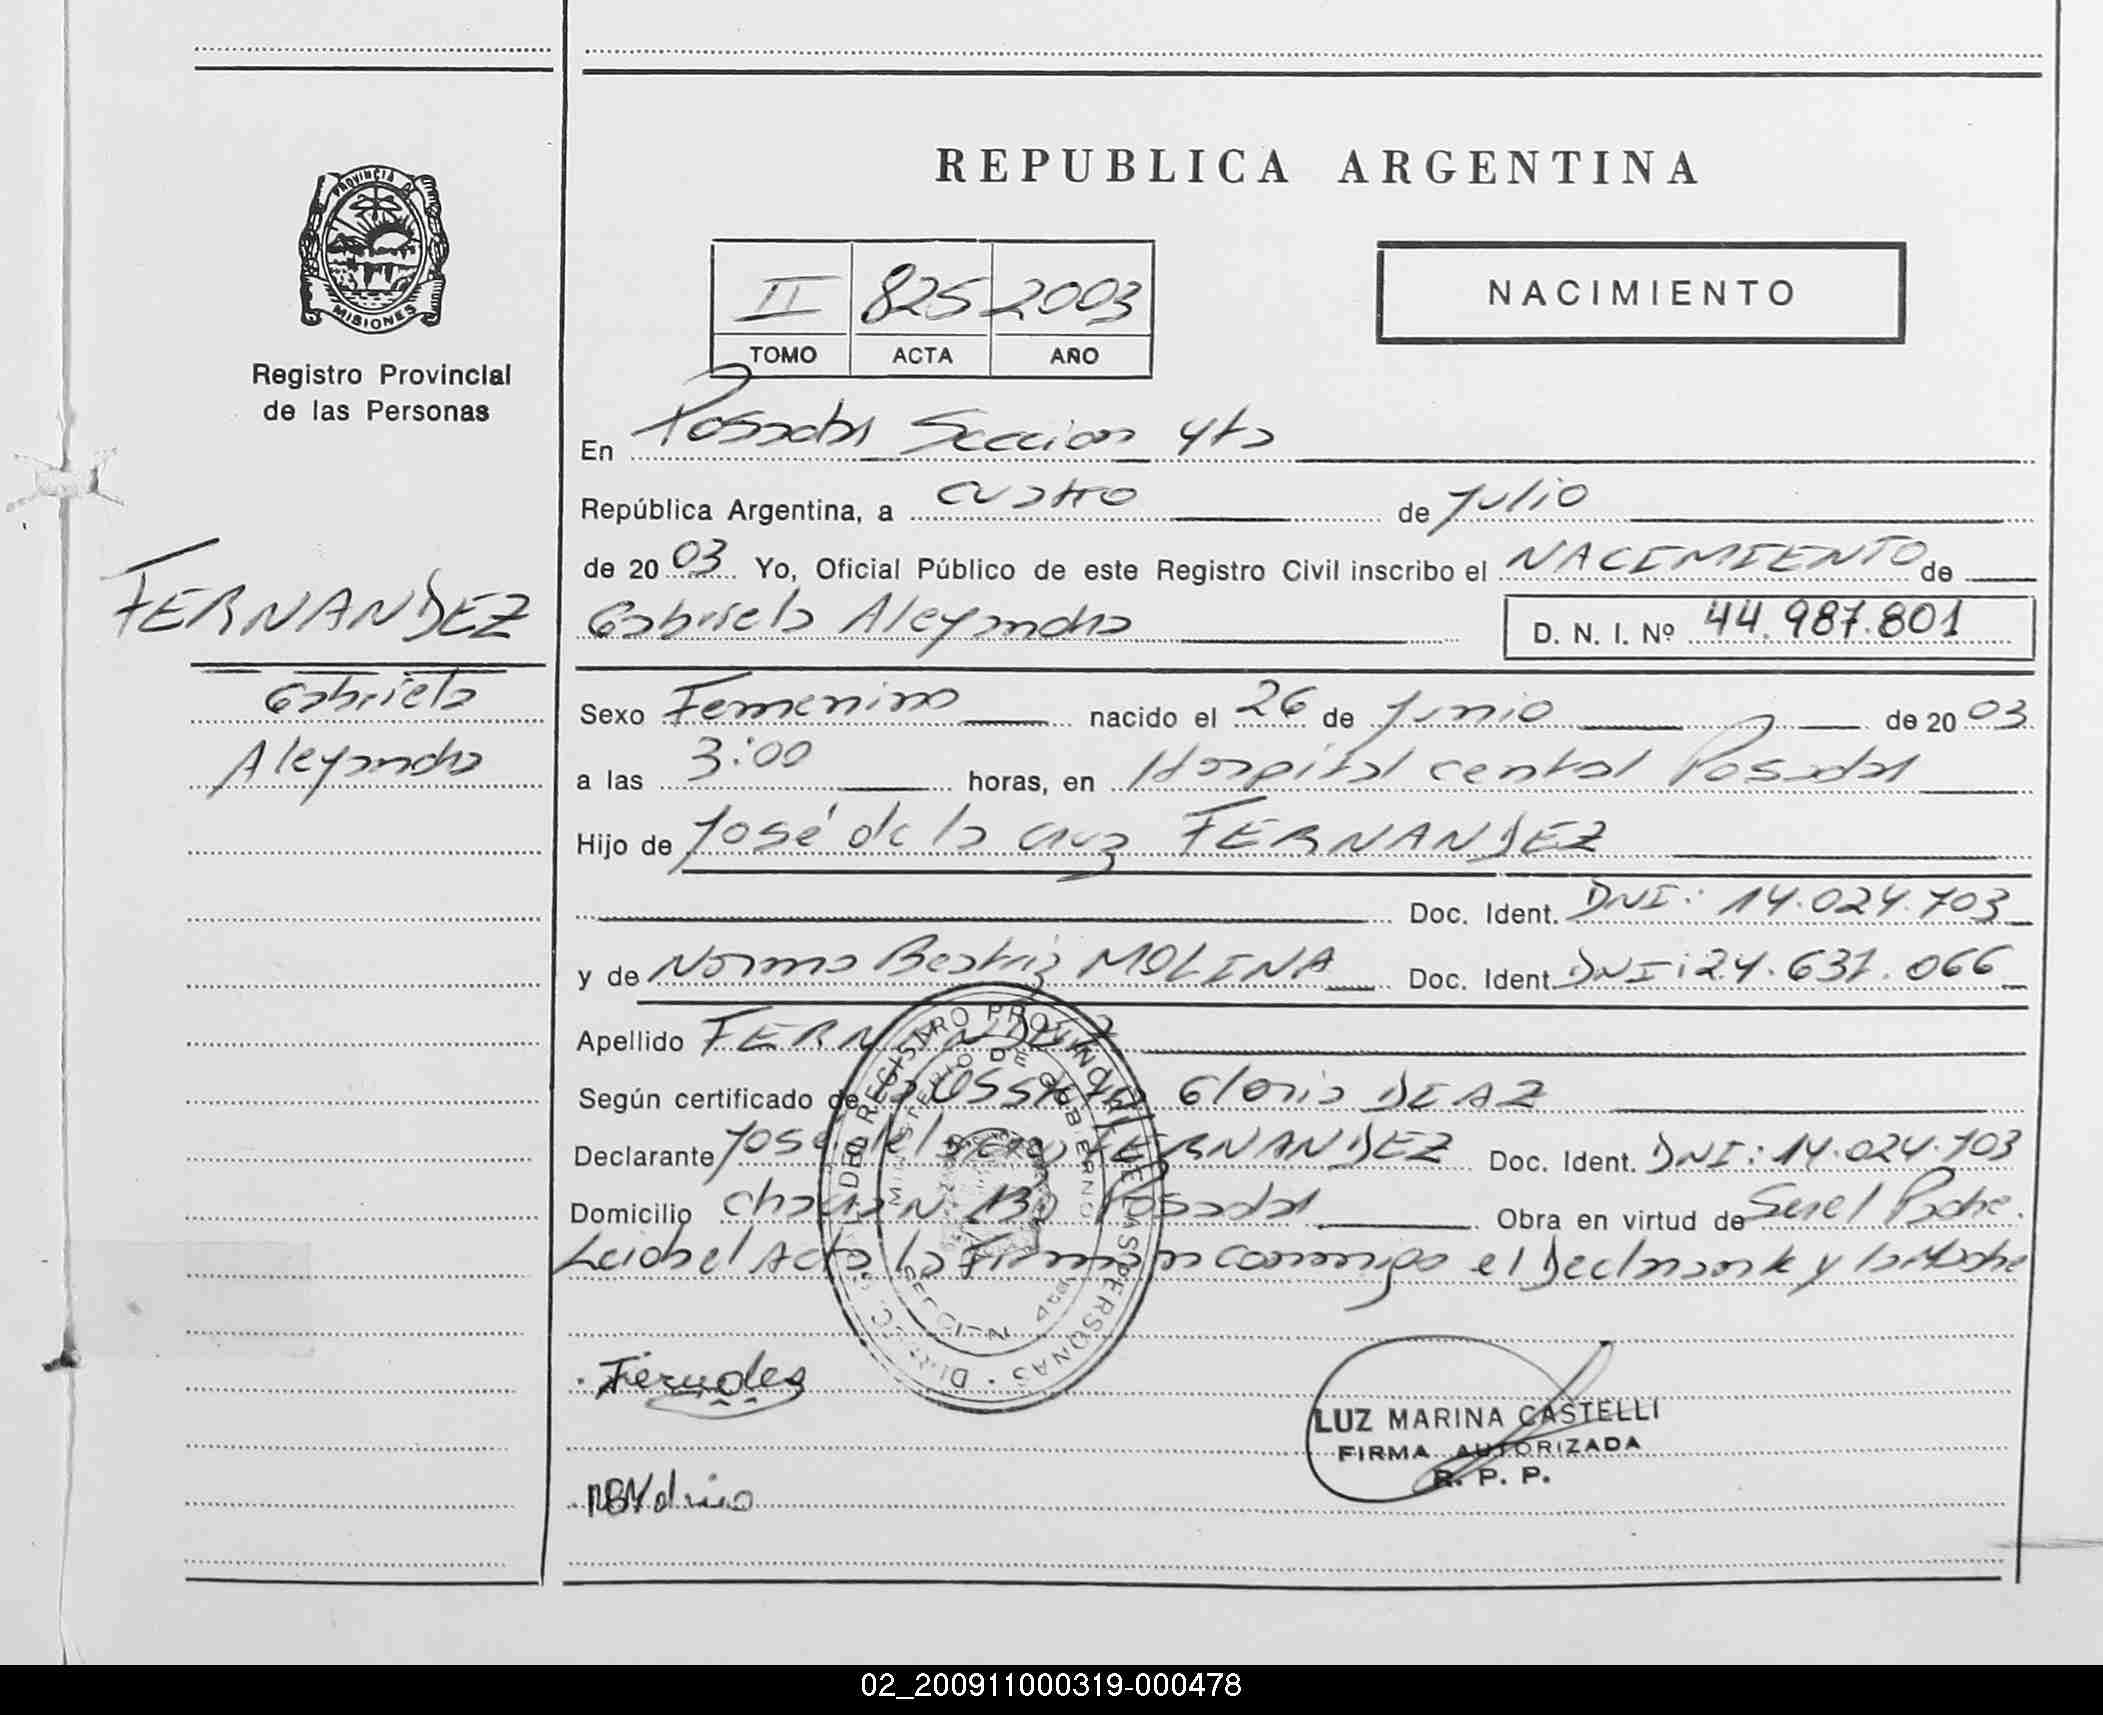 PROVINCIA DE
MISIONES
Registro Provincial
de las Personas
FERNANDEZ
Gabriela
Alejandra
REPUBLICA ARGENTINA
II 825 2003
TOMO ACTA AÑO
NACIMIENTO
En Posadas Seccion 4ta
República Argentina, a cuatro de Julio
de 2003 Yo, Oficial Público de este Registro Civil inscribo el NACIMIENTO de
Gabriela Alejandra D. N. I. Nº 44.987.801
Sexo Femenino nacido el 26 de Junio de 2003
a las 3:00 horas, en Hospital central Posadas
Hijo de José de la cruz FERNANDEZ
Doc. Ident. DNI: 14.024.703
y de Norma Beatriz MOLINA Doc. Ident. DNI: 24.631.066
Apellido FERNANDEZ
Según certificado de Gloria DIAZ
Declarante José de la cruz FERNANDEZ Doc. Ident. DNI: 14.024.703
Domicilio Posadas Obra en virtud de Ser el Padre.
Leida el Acta la Firman conmigo el Declarante y la Madre
REGISTRO PROVINCIAL DE LAS PERSONAS
MINISTERIO DE GOBIERNO
SECCION 4ta
Fernandez
LUZ MARINA CASTELLI
FIRMA AUTORIZADA
R. P. P.
02_200911000319-000478